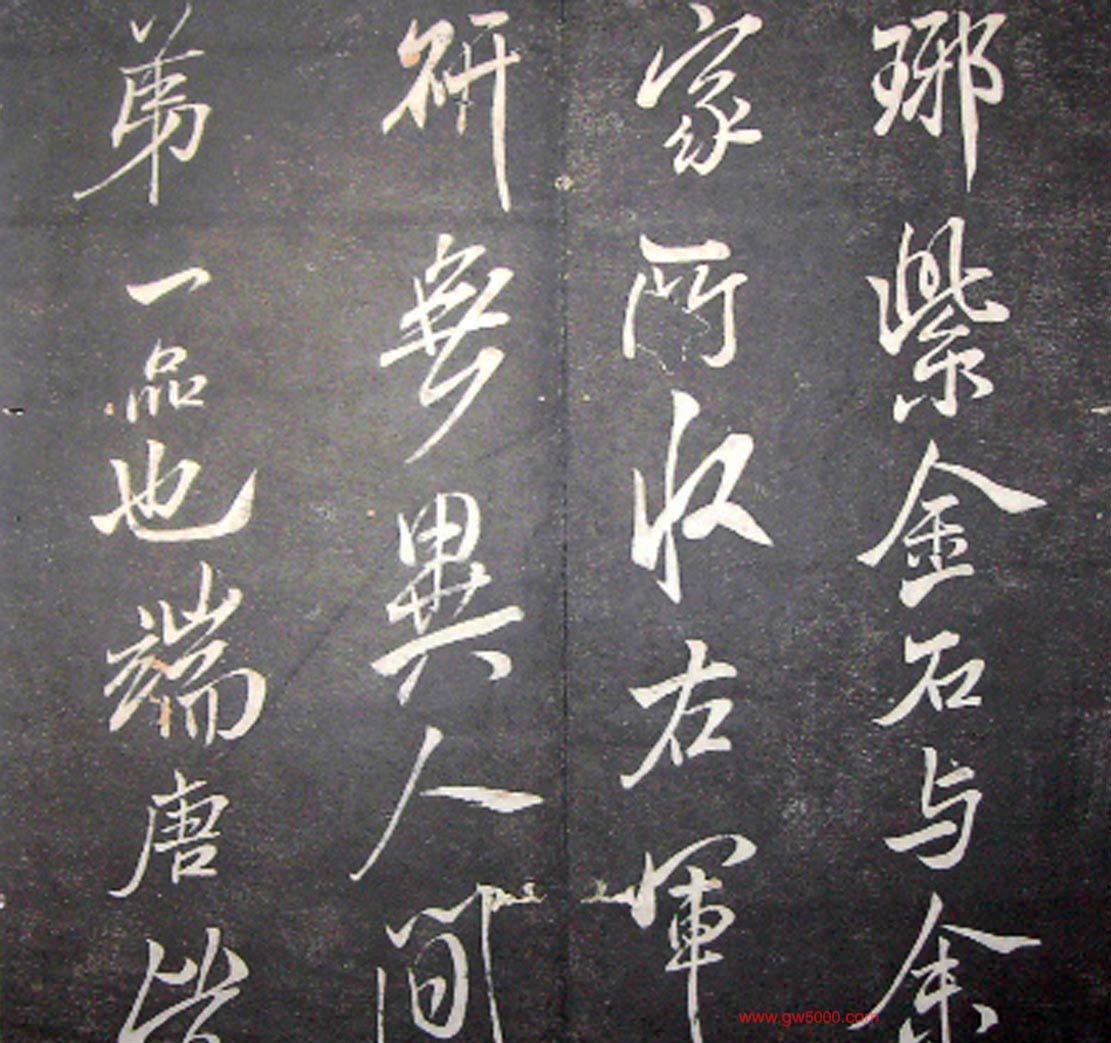 琊紫金石与余
家所收右軍
研無異人間
第一品也端唐皆
www.gw5000.com